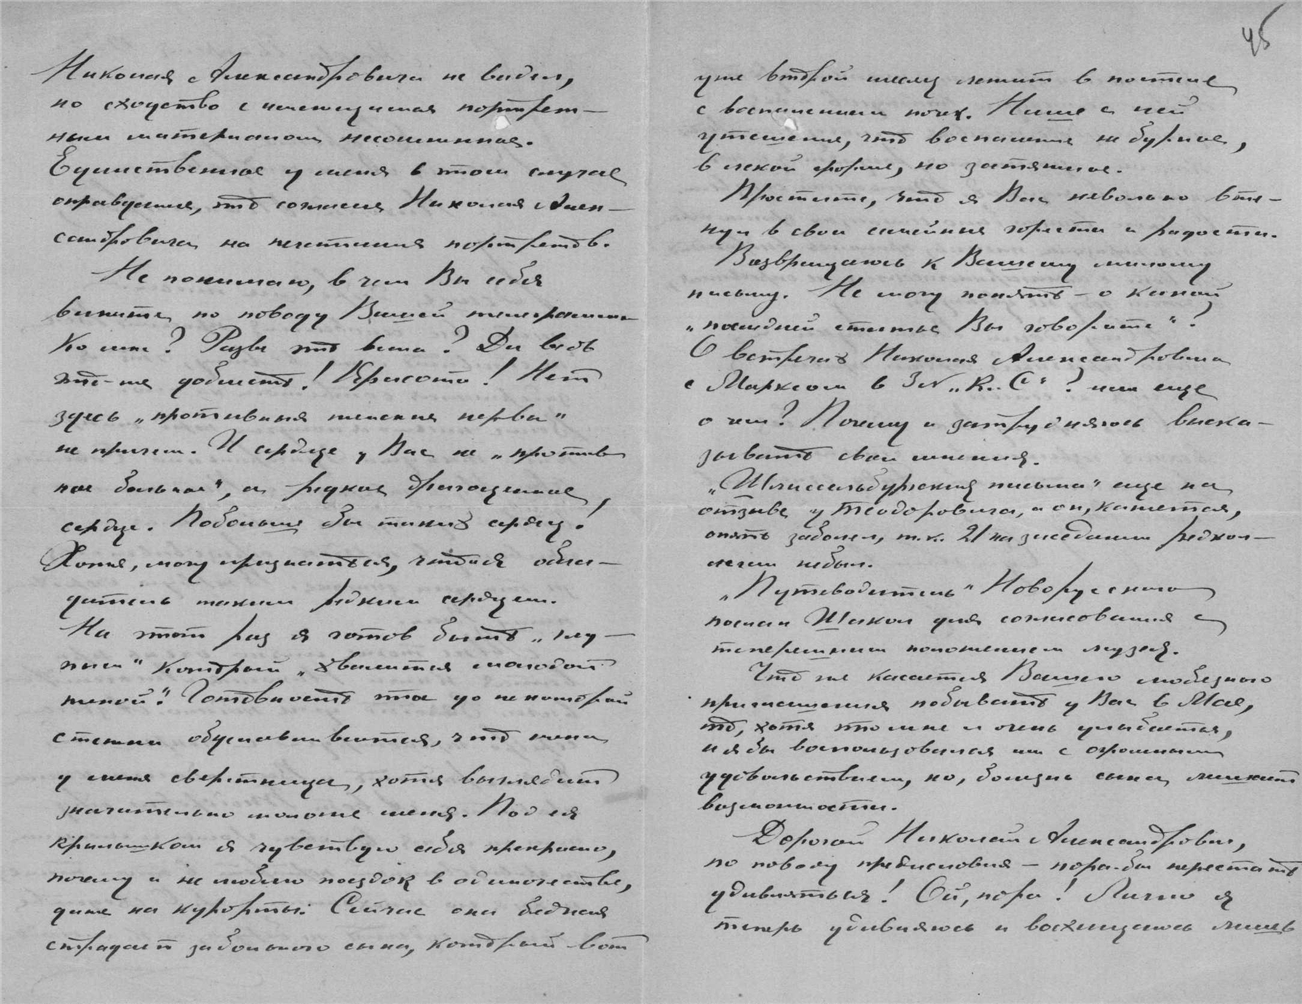 45
Николая Александровича не видел,
но сходство с имеющимся портрет-
ным материалом несомненное.
Единственное у меня в этом случае
оправдание, что согласия Николая Алек-
сандровича на печатания портретов.
Не понимаю, в чем Вы себя
вините по поводу Вашей телеграммы
ко мне? Разве это вина? Да ведь
это-же доблесть! Красота! Нет
здесь „противныя женския нервы"
не причем. И сердце у Вас не „против
ное больное", а редкое драгоценное,
сердце. Побольше бы таких сердец!
Хотя, могу признаться, что я обла-
датель таким редким сердцем.
На этот раз я готов быть „глу-
пым" который „хвалится молодой
женой". Готовность эта до некоторой
степени обуславливается, что жена
у меня сверстница, хотя выглядит
значительно моложе меня. Под ея
крылышком я чувствую себя прекрасно,
почему и не люблю поездок в одиночестве,
даже на курорты. Сейчас она бедная
страдает за больного сына, который вот
уже второй месяц лежит в постели
с воспалением почек. Наше с ней
утешение, что воспаление не бурное,
в легкой форме, но затяжное.
Простите, что я Вас невольно втя-
нул в свои семейныя горести и радости.
Возвращаюсь к Вашему милому
письму. Не могу понять – о какой
„последней статье Вы говорите"?
О встречах Николая Александровича
с Марксом в 3 N „К. и С."? или еще
о чем? Почему и затрудняюсь выска-
зывать свои мнения.
„Шлиссельбургския письма" еще на
отзыве у Теодоровича, и он, кажется,
опять заболел, т.к. 21 на заседании редкол-
легии небыл.
„Путеводитель" Новорусского
послал Шакол для согласования с
теперешним положением музея.
Что же касается Вашего любезного
приглашения побывать у Вас в Мае,
то, хотя это мне и очень улыбается,
и я бы воспользовался им с огромным
удовольствием, но, болезнь сына лишает
возможности.
Дорогой Николай Александрович,
по поводу предисловия – пора-бы перестать
удивляться! Ой, пора! Лично я
теперь удивляюсь и восхищаюсь лишь